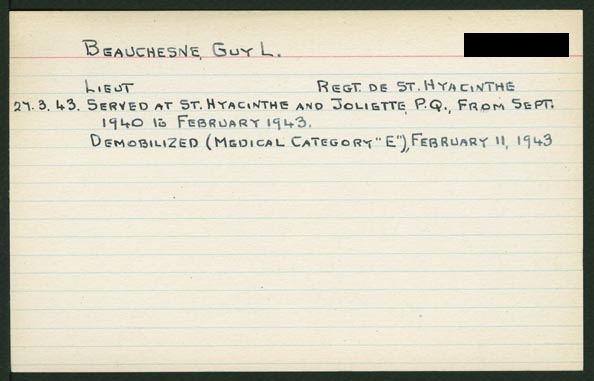 BEAUCHESNE, GUY L.
LIEUT REGT. DE ST. HYACINTHE
27.3.43. SERVED AT ST. HYACINTHE AND JOLIETTE, P.Q., FROM SEPT.
1940 TO FEBRUARY 1943.
DEMOBILIZED (MEDICAL CATEGORY "E"), FEBRUARY 11, 1943